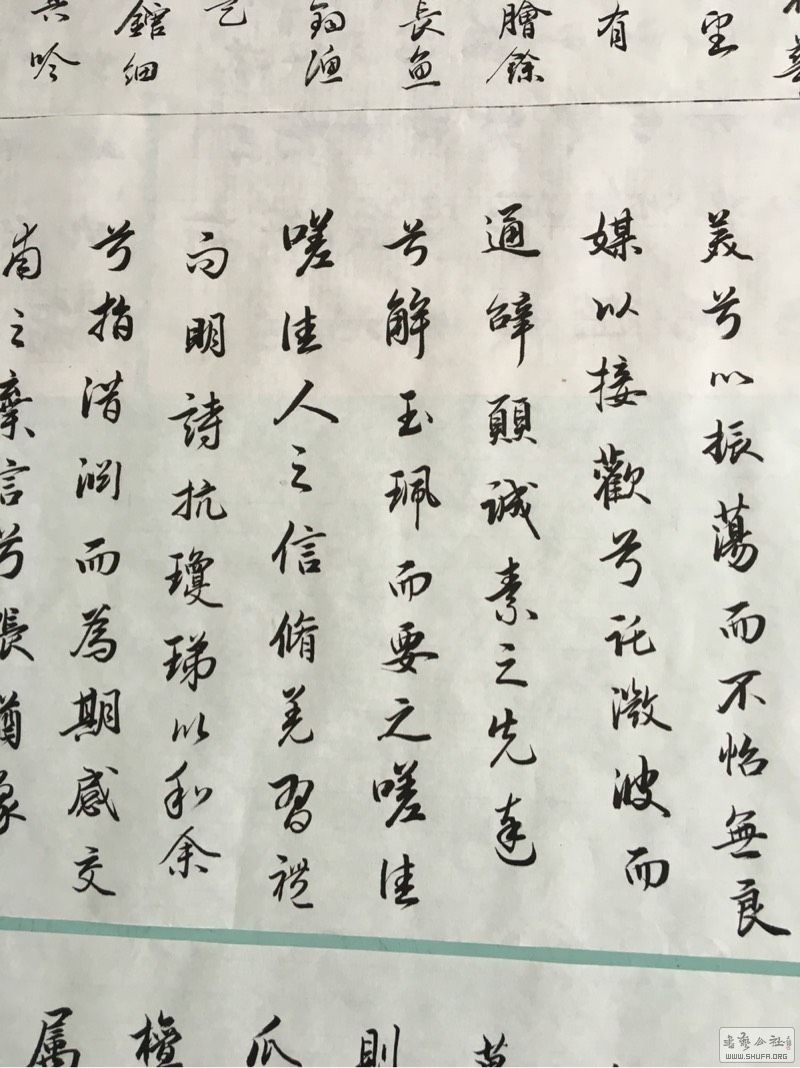 有
膾餘
長魚
館細
共吟
美兮心振蕩而不怡無良
媒以接歡兮託微波而
通辭願誠素之先達
兮解玉珮而要之嗟佳
嗟佳人之信脩羌習禮
而明詩抗瓊珶以和余
兮指潛淵而為期感交
甫之棄言兮悵猶豫
則
瓜
檀
属
書藝公社
WWW.SHUFA.ORG